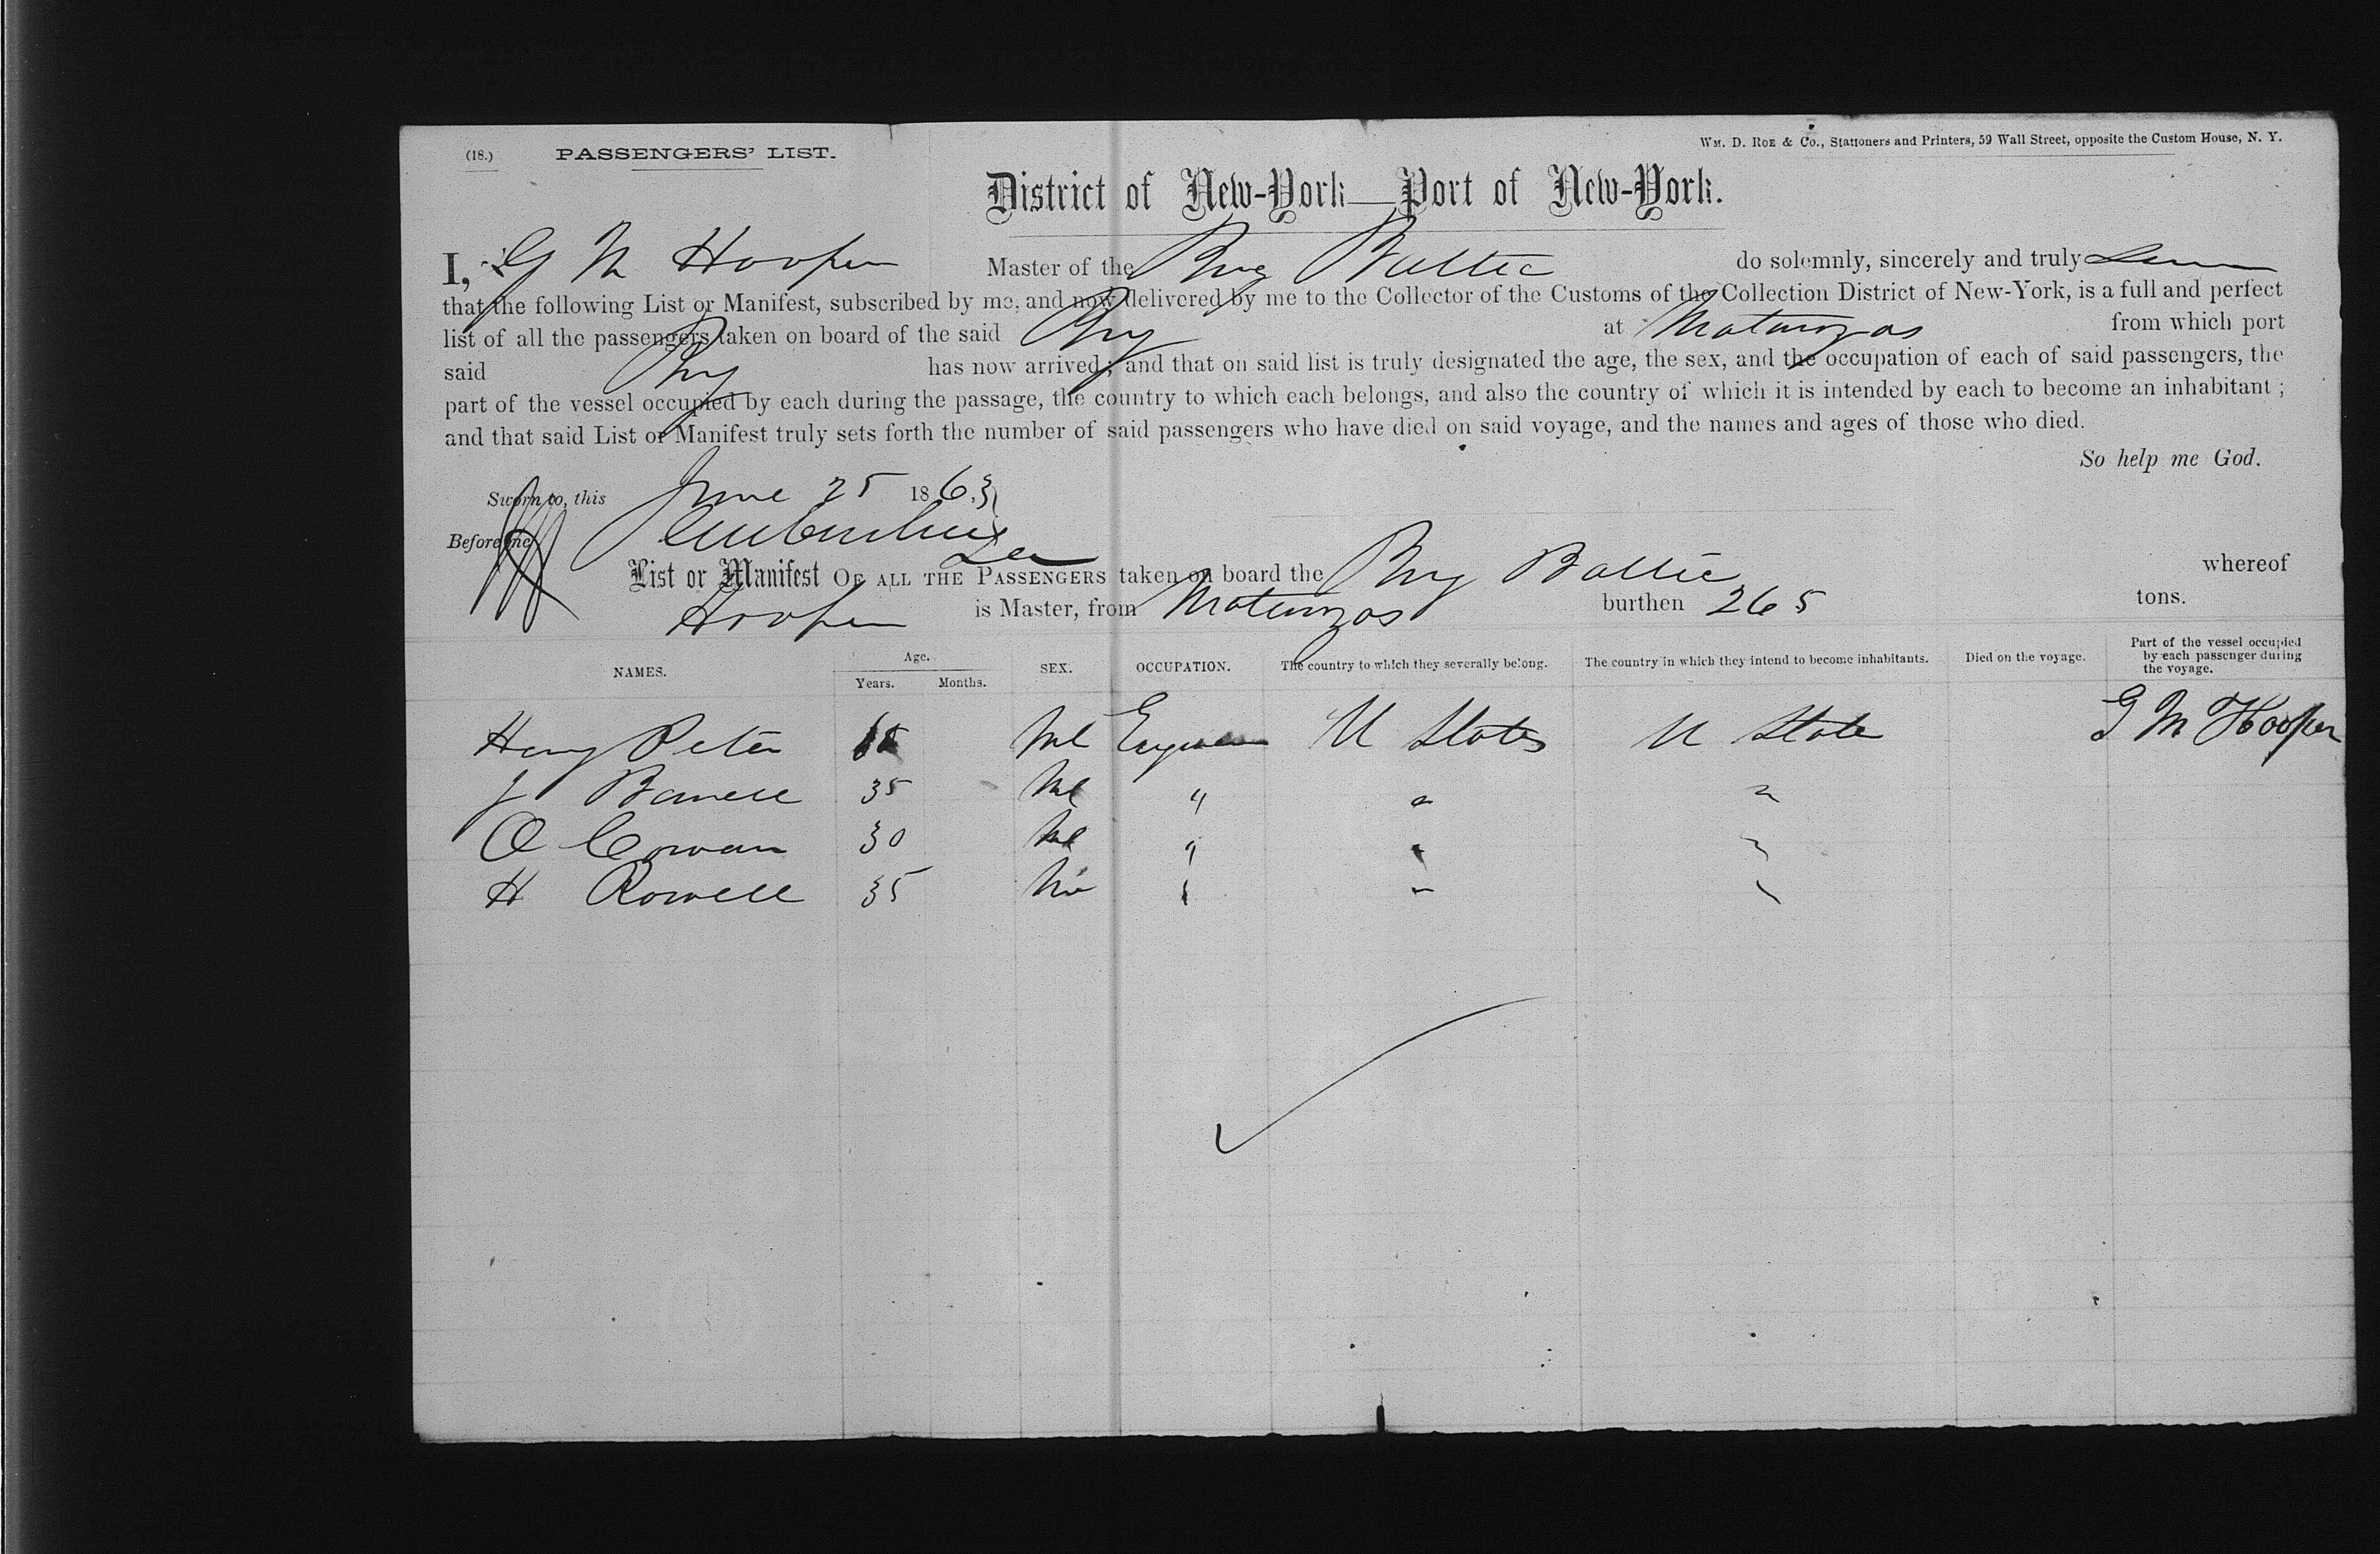 (18.) PASSENGERS' LIST.
Wm. D. Roe & Co., Stationers and Printers, 59 Wall Street, opposite the Custom House, N. Y.
District of New-York—Port of New-York.
I, G M Hooper Master of the Brig Baltic do solemnly, sincerely and truly
that the following List or Manifest, subscribed by me, and now delivered by me to the Collector of the Customs of the Collection District of New-York, is a full and perfect
list of all the passengers taken on board of the said Brig at Matanzas from which port
said Brig has now arrived; and that on said list is truly designated the age, the sex, and the occupation of each of said passengers, the
part of the vessel occupied by each during the passage, the country to which each belongs, and also the country of which it is intended by each to become an inhabitant;
and that said List or Manifest truly sets forth the number of said passengers who have died on said voyage, and the names and ages of those who died.
So help me God.
Sworn to, this June 25 1863
Before me
List or Manifest OF ALL THE PASSENGERS taken on board the Brig Baltic whereof
Hooper is Master, from Matanzas burthen 265 tons.
NAMES. Age. Years. Months. SEX. OCCUPATION. The country to which they severally belong. The country in which they intend to become inhabitants. Died on the voyage. Part of the vessel occupied by each passenger during the voyage.
Peter Ml U States U State G M Hooper
J 35 Ml " " "
Cowan 30 Ml " " "
H Rowell 35